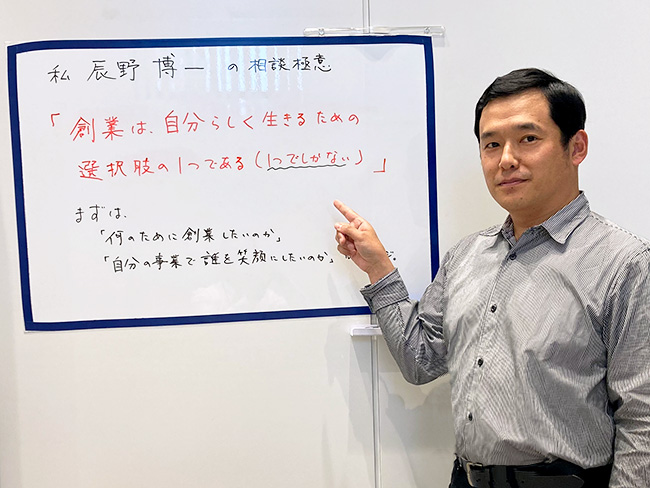 私 辰野 博一 の 相談極意
「創業は、自分らしく生きるための
選択肢の1つである(1つでしかない)」
まずは、
「何のために創業したいのか」
「自分の事業で誰を笑顔にしたいのか」